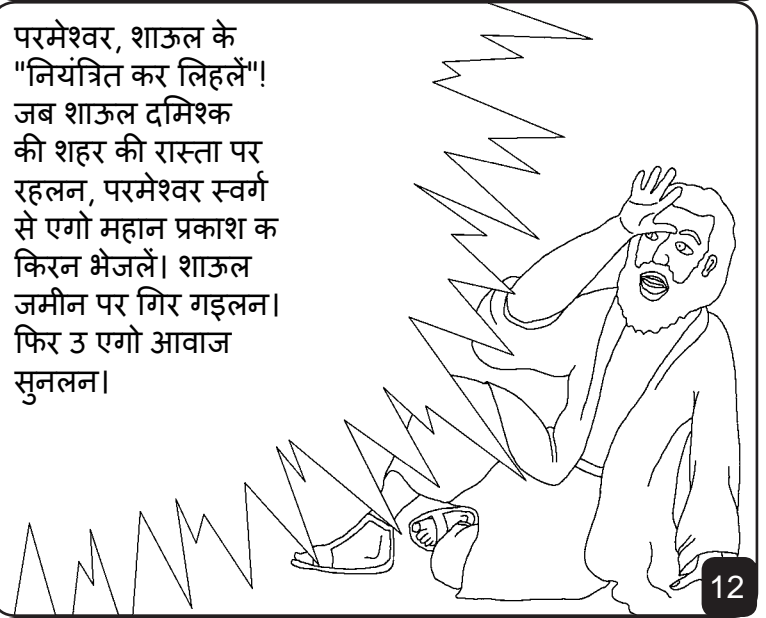 परमेश्वर, शाऊल के
"नियंत्रित कर लिहलें"!
जब शाऊल दमिश्क
की शहर की रास्ता पर
रहलन, परमेश्वर स्वर्ग
से एगो महान प्रकाश क
किरन भेजलें। शाऊल
जमीन पर गिर गइलन।
फिर उ एगो आवाज
सुनलन।
12